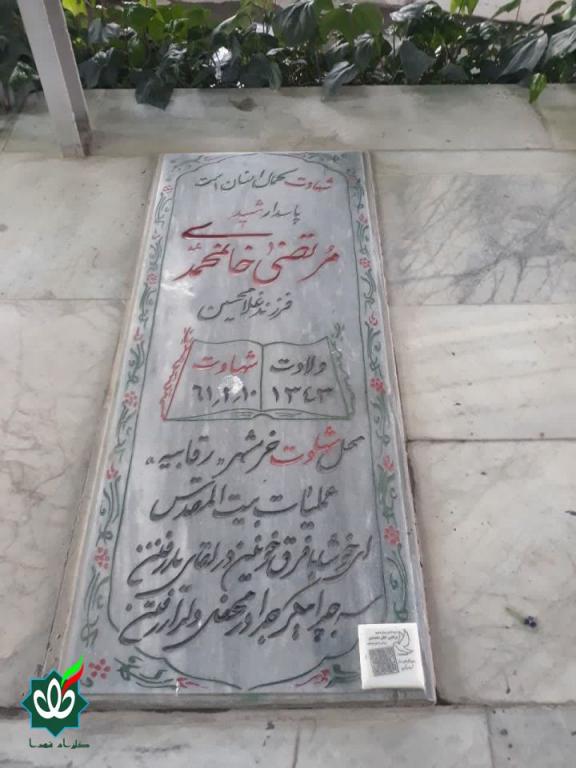 شهادت کمال انسان است
پاسدار شهید
مرتضی خانمحمدی
فرزند غلامحسین
ولادت
۱۳۴۳
شهادت
۶۱٫۲٫۱۰
محل شهادت خرمشهر «رقابیه»
عملیات بیت المقدس
ای خوشا با فرق خونین در لقای یار رفتن
سر جدا پیکر جدا در محفل دلدار رفتن
گلزار شهدا